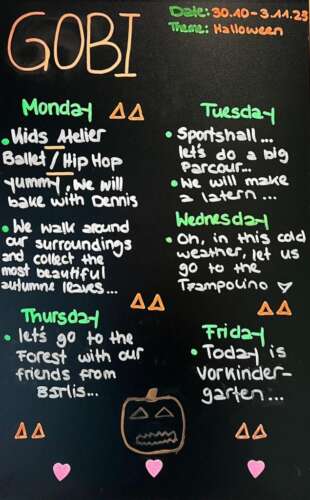 GOBI
Date: 30.10 - 3.11.23
Theme: Halloween
Monday
• Kids Atelier
Ballet / Hip Hop
Yummy, We will
bake with Dennis
• We walk around
our surroundings
and collect the
most beautiful
autumne leaves...
Tuesday
• Sportshall...
let's do a big
Parcour...
• We will make
a latern...
Wednesday
• Oh, in this cold
weather, let us
go to the
Trampolino
Thursday
• let's go to the
Forest with our
friends from
Bärlis...
Friday
• Today is
Vorkinder-
garten...